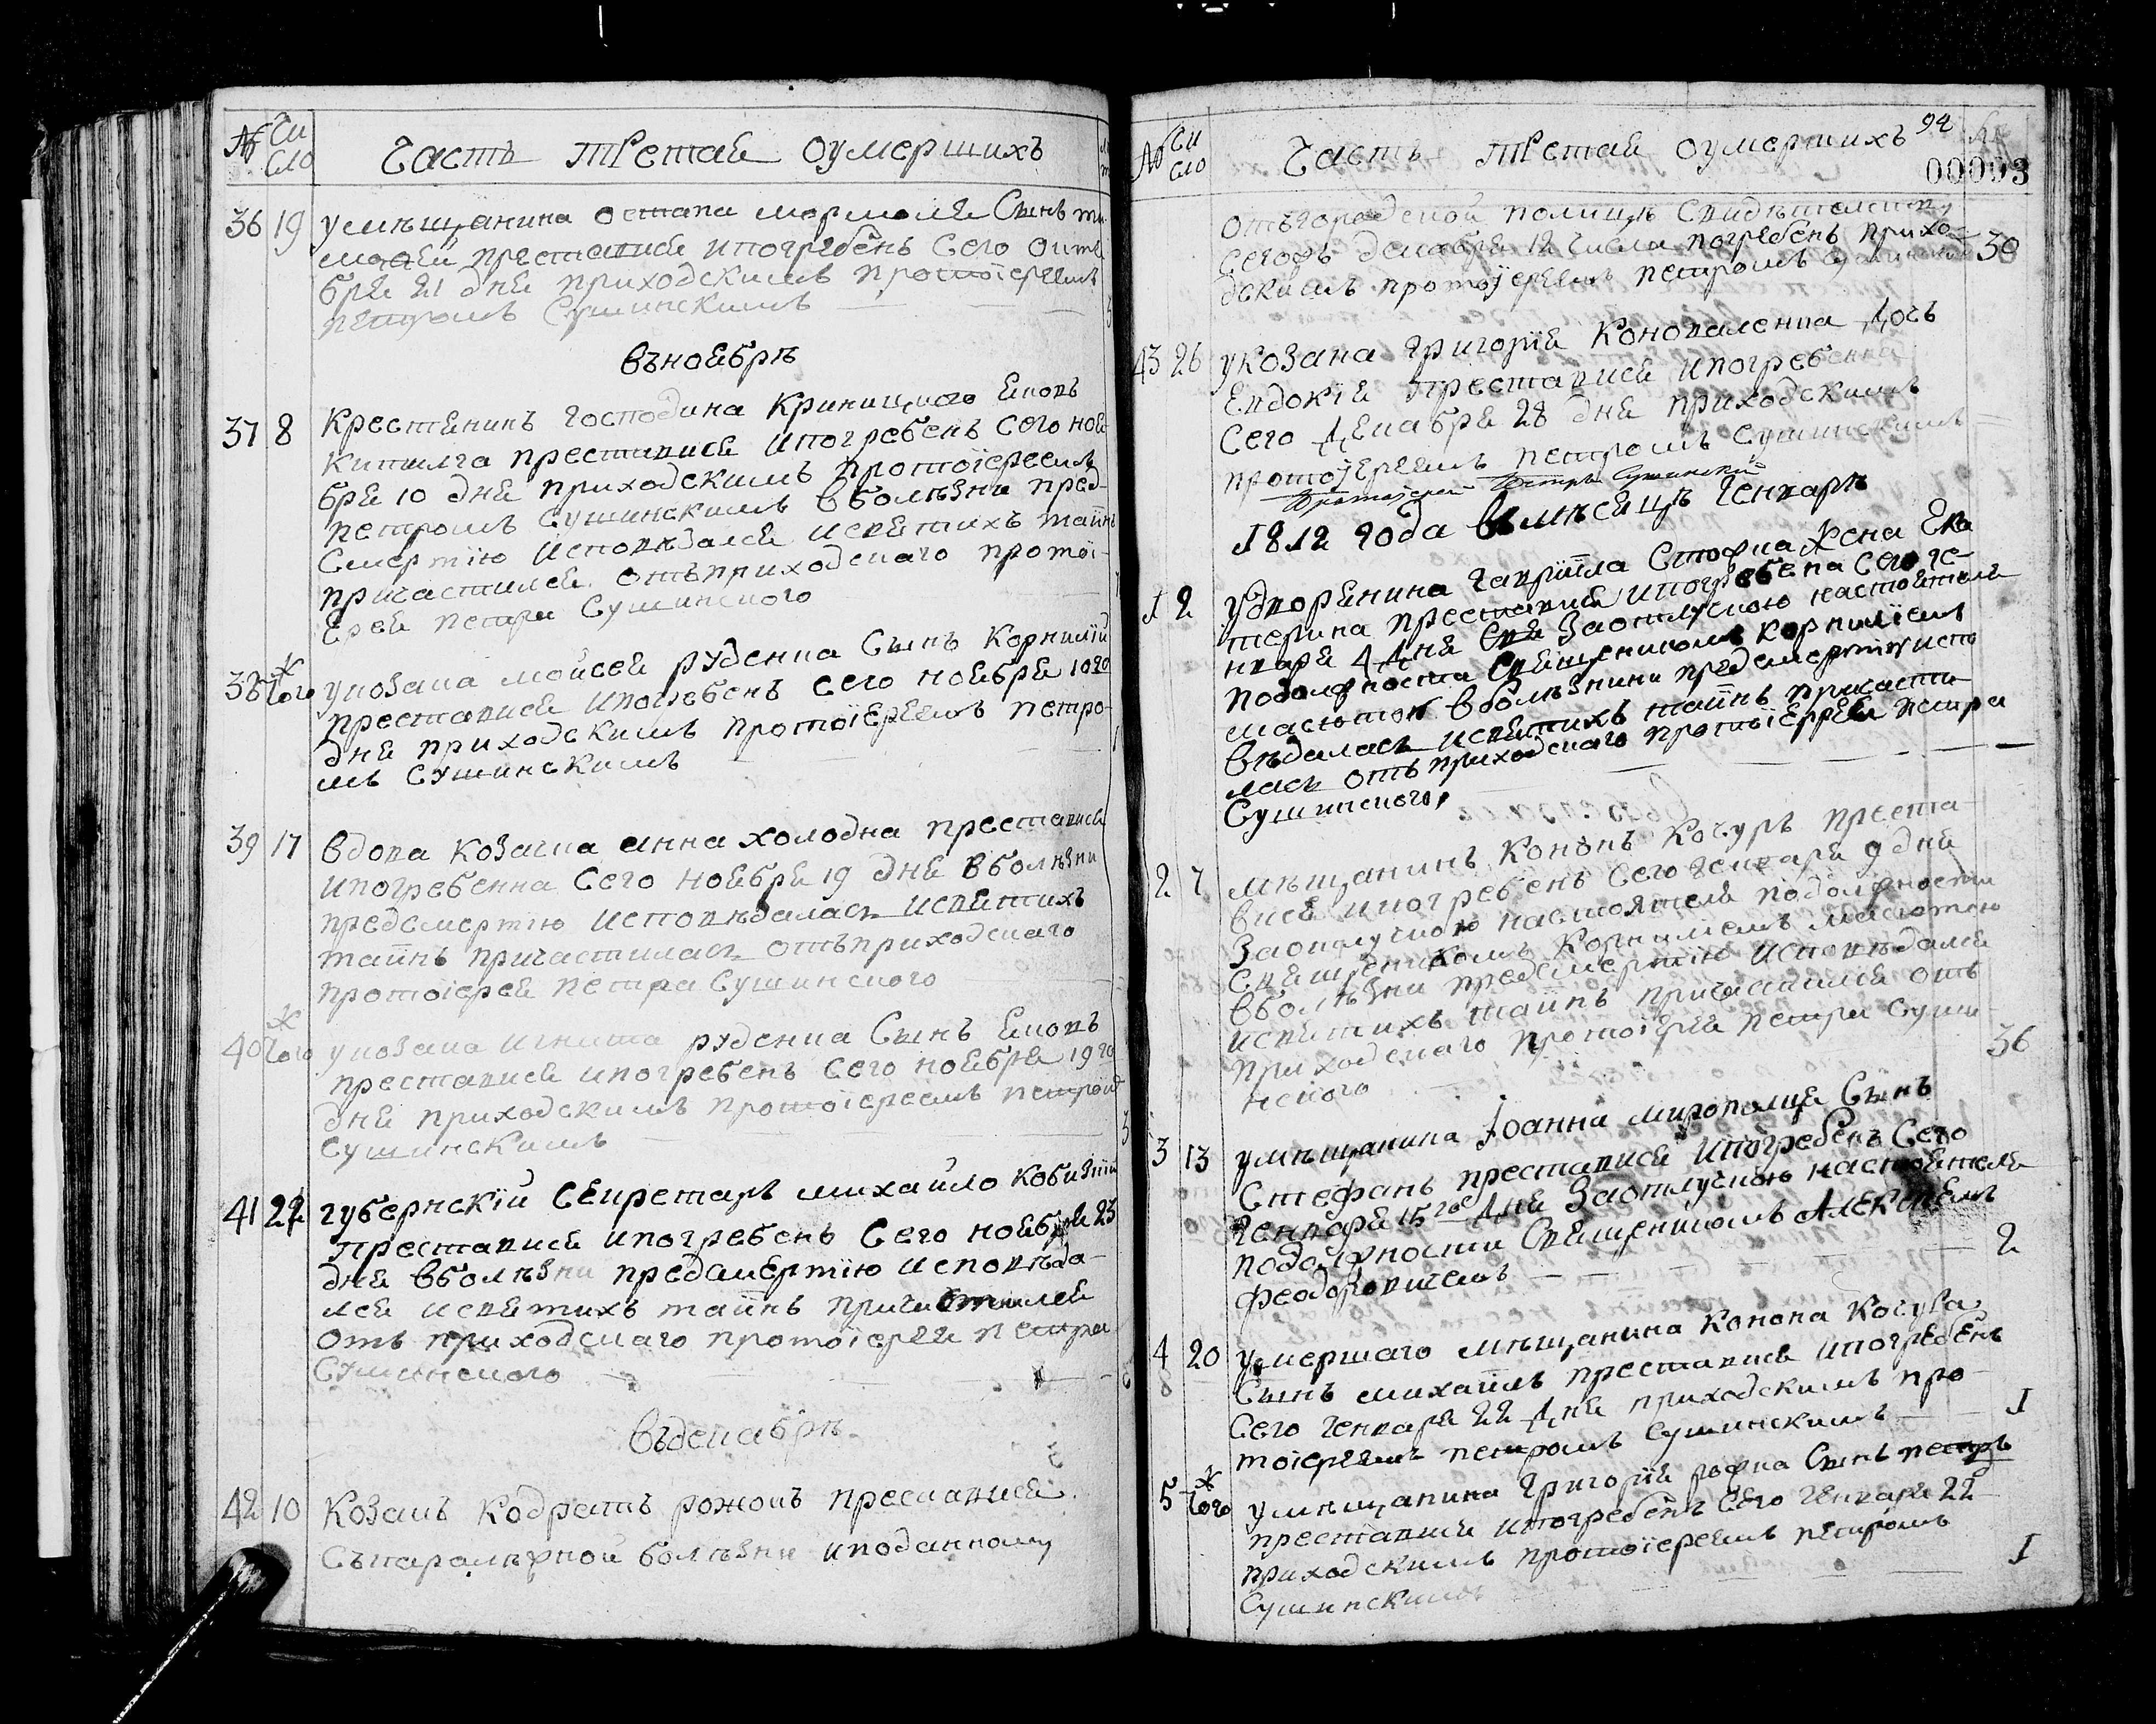 № Число Часть третая оумершихъ
36 19 умѣщанина остапа мормоля Сынъ ти
мофей преставися ипогребенъ Сего октя
бря 21 дня приходскимъ протоіереемъ
петромъ Сушинскимъ
въноябрѣ
37 8 Крестянинъ господина Криницкого Яковъ
преставися ипогребенъ Сего ноя
бря 10 дня приходскимъ протоіереемъ
петромъ Сушинскимъ вболѣзни пред
Смертію исповѣдался исвятихъ таинъ
причастился отъприходскаго протоі
Ерея петра Сушинского
38 того укозака мойсея руденка Сынъ Корнилій
преставися ипогребенъ Сего ноября 10го
дня приходскимъ протоіереемъ петро
мъ Сушинскимъ
39 17 вдова козачка анна холодна преставися
ипогребенна Сего ноября 19 дня вболѣзни
предсмертію исповѣдалась исвятихъ
таинъ причастилась отъприходскаго
протоіерея петра Сушинского
40 того укозака игната руденка Сынъ Яковъ
преставися ипогребенъ Сего ноября 19го
дня приходскимъ протоіереемъ петромъ
Сушинскимъ
41 22 губернскій Секретарь михайло
преставися ипогребенъ Сего ноября 23
дня вболѣзни предсмертію исповѣда
лся исвятихъ таинъ причастился
отъ приходскаго протоіерея петра
Сушинского
въдекабрѣ
42 10 Козакъ Кодратъ рожокъ преставися
Съпаралѣжной болѣзни иподанному
№ Число Часть третая оумершихъ 94
00093
отъгородской полиціи Свидѣтелству
Сегожъ декабря 12 числа погребенъ прихо
дскимъ протоіереемъ петромъ Сушинскимъ 30
43 26 укозака григорія Коноваленка Дочь
Евдокія преставися ипогребенна
Сего Декабря 28 дня приходскимъ
протоіереемъ петромъ Сушинскимъ
Протоіерей Петръ Сушинскій
1812 года вмѣсяцѣ Генварѣ
1 2 удворянина гавріила Стожка Жена Ека
терина преставися ипогребена Сего ге
нваря 4 Дня Заотлучкою настоятеля
подолжности Священникомъ Корниліемъ
вболѣзни предсмертію испо
вѣдалась исвятихъ таинъ причасти
лась отъ приходскаго протоіерея петра
Сушинского
2 7 мѣщанинъ Кононъ Кочуръ преста
вися ипогребенъ Сего генваря 9 дня
Заотлучкою настоятеля подолжности
Священикомъ Корниліемъ
вболѣзни предсмертію исповѣдался
исвятихъ таинъ причастился отъ
приходскаго протоіерея петра Суши
нского 36
3 13 умѣщанина Іоанна миропольця Сынъ
Стефанъ преставися ипогребенъ Сего
Генваря 15го Дня Заотлучкою настоятеля
подолжности Священикомъ Алексѣемъ
феодоровичемъ 2
4 20 умершаго мѣщанина Конона Кочура
Сынъ михаилъ преставися ипогребенъ
Сего Генваря 22 Дня приходскимъ про
тоіереемъ петромъ Сушинскимъ 1
5 того умѣщанина григорія рожка Сынъ петръ
преставися ипогребенъ Сего Генваря 22
приходскимъ протоіереемъ петромъ
Сушинскимъ 1